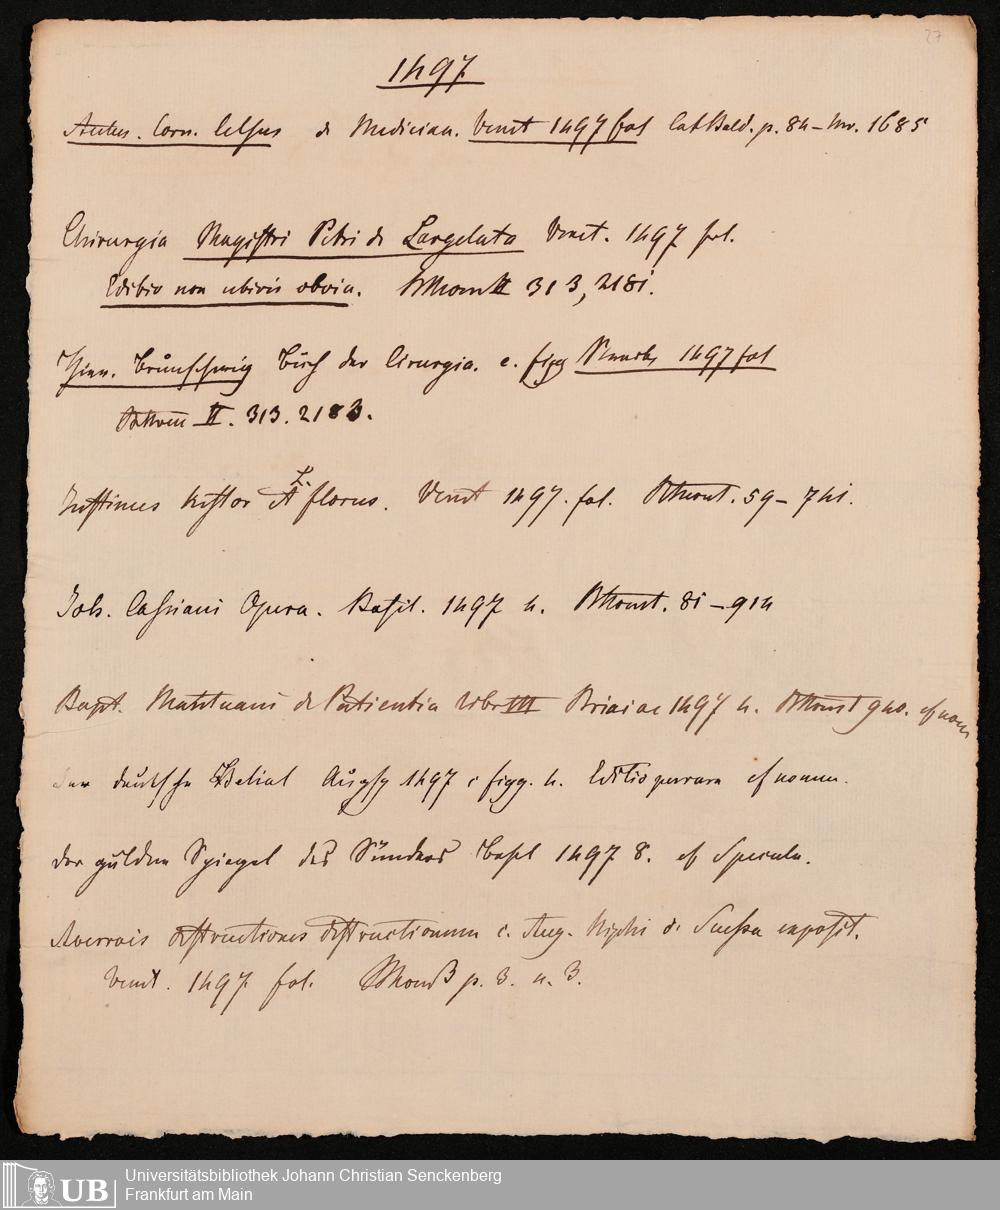 27
1497
Aulus. Corn. Celsus de Medicina. Venet 1497 fol Cat p. 84 – 1685
Chirurgia Magistri Petri de Largelata Venet. 1497 fol.
Editio non ubivis obvia. II 313, 2181.
Brunschwig Buch der Cirurgia. c. figg 1497 fol
II. 313. 2183.
Justinus histor L. florus. Venet 1497. fol. 59 – 741.
Joh. Cassiani Opera. Basil. 1497 4. 81 – 914
Bapt. Mantuani de Patientia libr III Brixiae 1497 4. 940.
Der deutsche Belial Augsp 1497 c figg. 4. Editio perrara cf
Der gulden Spiegel des Sünders Basel 1497 8. cf Specula.
Averrois destructiones destructionum c. Aug. Niphi de Suessa exposit.
Venet. 1497 fol. p. 3. n. 3.
UB
Universitätsbibliothek Johann Christian Senckenberg
Frankfurt am Main